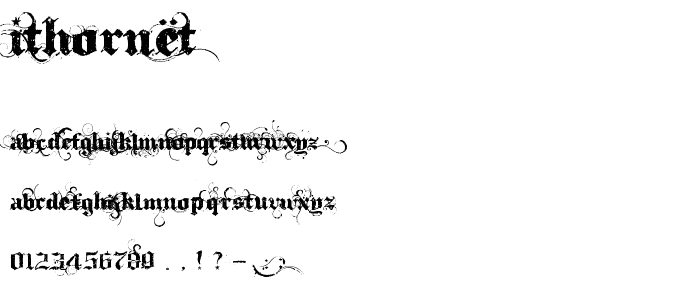 ithornët
abcdefghijklmnopqrstuvwxyz
abcdefghijklmnopqrstuvwxyz
0123456789 . , ! ? - : ;